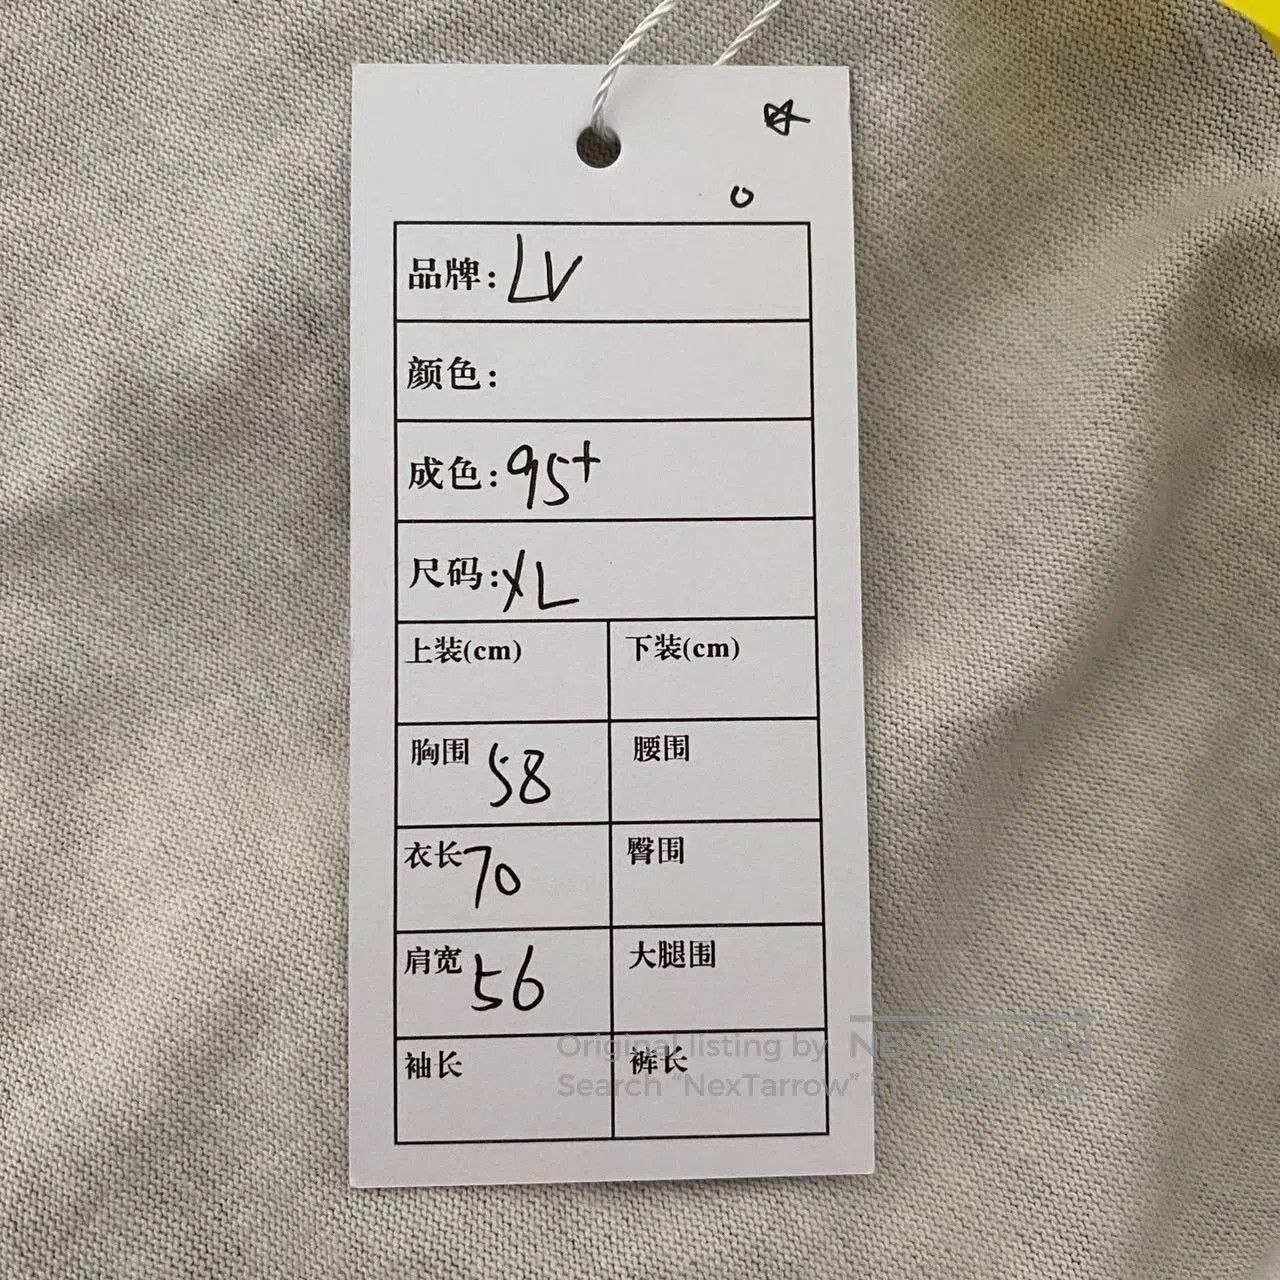 0
品牌: LV
颜色:
成色: 95+
尺码: XL
上装(cm) 下装(cm)
胸围 58 腰围
衣长 70 臀围
肩宽 56 大腿围
袖长 裤长
Original listing by NEXTARROW
Search "NexTarrow" in